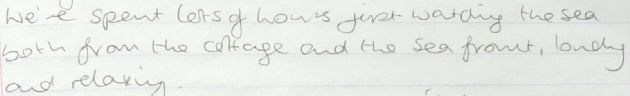 We've spent lots of hours just watching the sea
both from the cottage and the sea front, lovely
and relaxing.